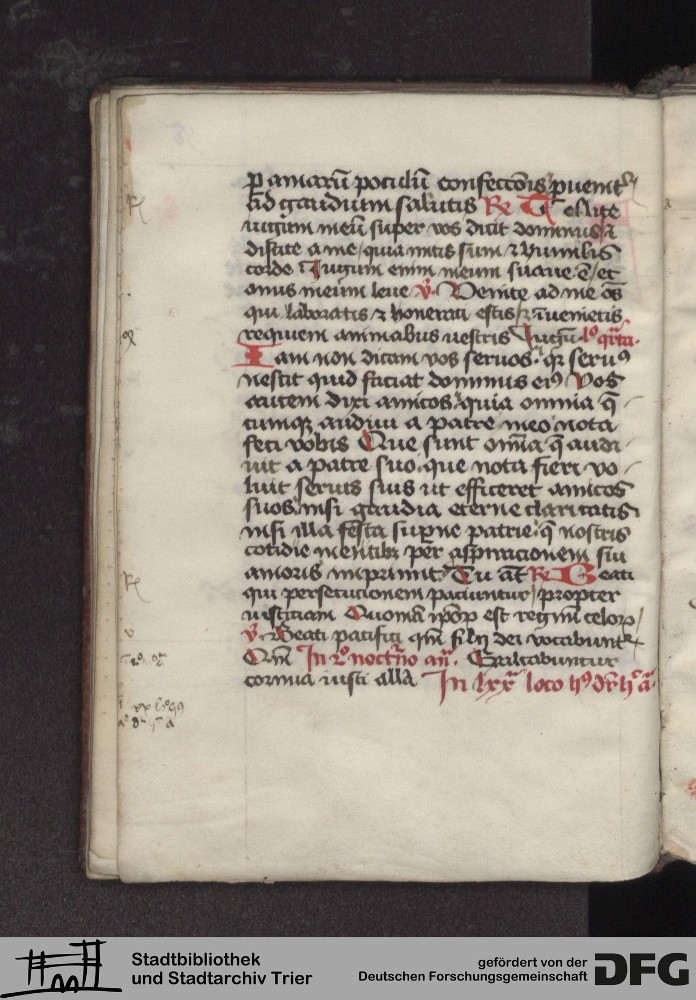 p amarū poculū confectōis puenit᷑
Ad gaudium salutis Rx Tollite
iugum meū super vos dicit dominus ⁊
discite a me / quia mitis sum ⁊ humilis
corde Iugum enim meum suaue ē / et
onus meum leue v̕ Venite ad me oēs
qui laboratis ⁊ honerati estis / ⁊ īuenietis
requiem animabus vestris Iugū lo q̄rta
Iam non dicam vos seruos · qr seruꝰ
nescit quid faciat dominus eiꝰ Vos
autem dixi amicos quia omnia q̄
cumqꝫ audiui a patre meo nota
feci vobis Que sunt om̄ia q̄ audi
uit a patre suo · que nota fieri vo
luit seruis suis ut efficeret amicos
suos nisi gaudia eterne claritatis
nisi illa festa sup̄ne patrie q̄ nostris
cotidie mentibꝫ per aspiracionem sui
amoris imprimit Tu āt Rx Beati
qui persecucionem paciuntur / propter
iusticiam Quoniā ipōꝝ est regnū celoꝝ /
v̕ Beati pacifici qm̄ filij dei vocabunt᷑
Qm̄ In 2o noct̄no an̄ · Exaltabuntur
cornua iusti alla In lxxa loco hꝰ dr̄ hec a
Stadtbibliothek
und Stadtarchiv Trier
gefördert von der
Deutschen Forschungsgemeinschaft
DFG